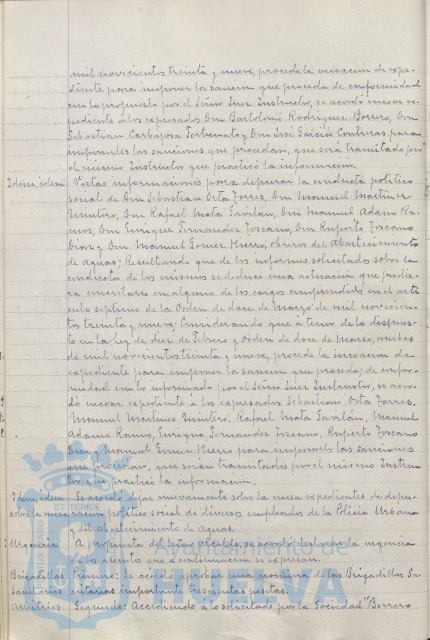 mil novecientos treinta y nueve, procede la incoación de expe-
diente para imponer la sanción que proceda de conformidad
con lo propuesto por el Señor Juez Instructor, se acordó incoar ex-
pediente a los expresados Don Bartolomé Rodríguez Borrero, Don
Sebastian Carbajosa Fortunato y Don José García Contreras para
imponerles las sanciones que procedan, que será tramitado por
el mismo Instructor que practicó la información.
Idem, idem. Vistas informaciones para depurar la conducta político
social de Don Sebastian Orta Torres, Don Manuel Martinez
Minitro, Don Rafael Mata Gavilán, Don Manuel Adame Ra-
mos, Don Enrique Fernandez Toscano, Don Ruperto Toscano
Díaz y Don Manuel Gomez Hierro, obreros del Abastecimiento
de Aguas; Resultando que de los informes solicitados sobre la
conducta de los mismos se deduce una actuación que pudie-
ra concretarse en alguno de los cargos comprendidos en el artí-
culo septimo de la Orden de doce de Marzo de mil novecien-
tos treinta y nueve; Considerando que a tenor de lo dispues-
to en la Ley de diez de Febrero y Orden de doce de Marzo, ambas
de mil novecientos treinta y nueve, procede la incoación de
expediente para imponer la sanción que proceda; de confor-
midad con lo informado por el Señor Juez Instructor, se acor-
dó incoar expediente a los expresados Sebastian Orta Torres,
Manuel Martinez Minitro, Rafael Mata Gavilán, Manuel
Adame Ramos, Enrique Fernandez Toscano, Ruperto Toscano
Díaz y Manuel Gomez Hierro para imponerles las sanciones
que procedan, que serán tramitados por el mismo Instruc-
tor que practicó la información.
Idem, idem. Se acordó dejar nuevamente sobre la mesa expedientes de depu-
ración político social de diversos empleados de la Policía Urbana
sobre la mesa
y del abastecimiento de aguas.
Urgencia A propuesta del Señor Alcalde, se acordó declarar la urgencia
de los asuntos que a continuación se expresan.
Brigadillas Primero; Se acordó aprobar una nómina de las Brigadillas Sa-
Sanitarias nitarias importante trescientas pesetas.
Arbitrios Segundo: Accediendo a lo solicitado por la Sociedad "Borrero
Ayuntamiento de
HUELVA